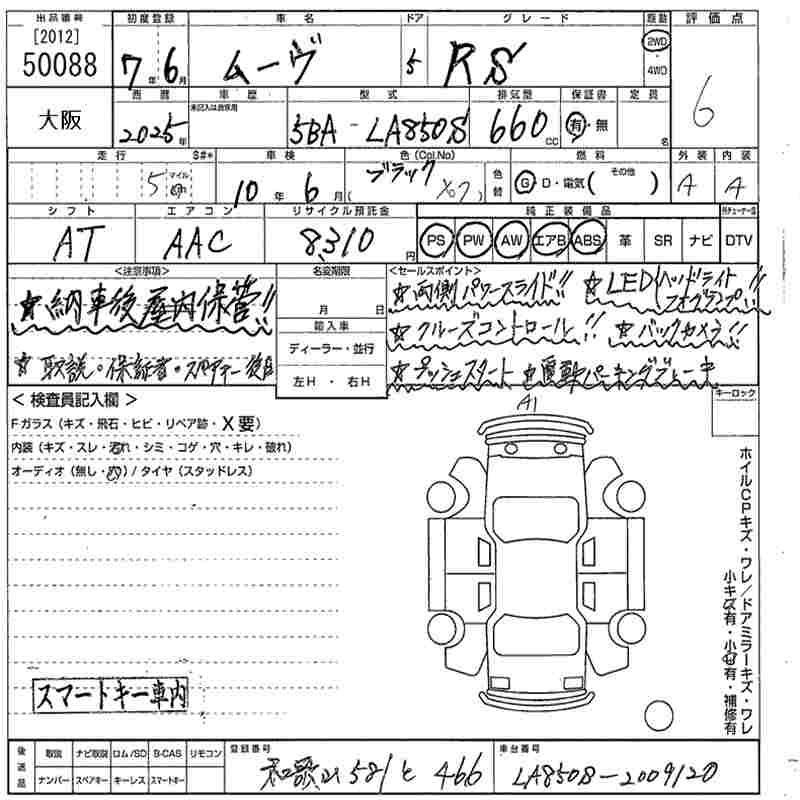 出品番号 初度登録 車名 ドア グレード 駆動 評価点
[2012]
50088 7年6月 ムーヴ 5 RS 2WD・4WD 6
西暦 車歴 型式 排気量 保証書 定員
未記入は自家用
大阪 2025年 5BA-LA850S 660cc 有・無 名
走行 S#* 車検 色(Col.No) 燃料 その他 外装 内装
5 マイル km 10年6月 ブラック (X07) 色替 G・D・電気( ) A A
シフト エアコン リサイクル預託金 純正装備品
AT AAC 8310円 PS PW AW エアB ABS 革 SR ナビ DTV
<注意事項> 名変期限 <セールスポイント>
☆納車後屋内保管!! 月 日 ☆両側パワースライド!! ☆LEDヘッドライト フォグランプ!!
輸入車 ☆クルーズコントロール!! ☆バックカメラ!!
☆取説・保証書・スペアキー後日 ディーラー・並行 ☆プッシュスタート ☆電動パーキングブレーキ
左H・右H
<検査員記入欄> A1 キーロック
Fガラス(キズ・飛石・ヒビ・リペア跡・X要)
内装(キズ・スレ・汚れ・シミ・コゲ・穴・キレ・破れ)
オーディオ(無し・穴)/タイヤ(スタッドレス)
ホイルCPキズ・ワレ/ドアミラーキズ・ワレ
小キズ有・小凹有・補修有
スマートキー車内
後送品 取説 ナビ取説 ロム/SD B-CAS リモコン 登録番号 車台番号
ナンバー スペアキー キーレス スマートキー 和歌山 581 と 466 LA850S-2009120